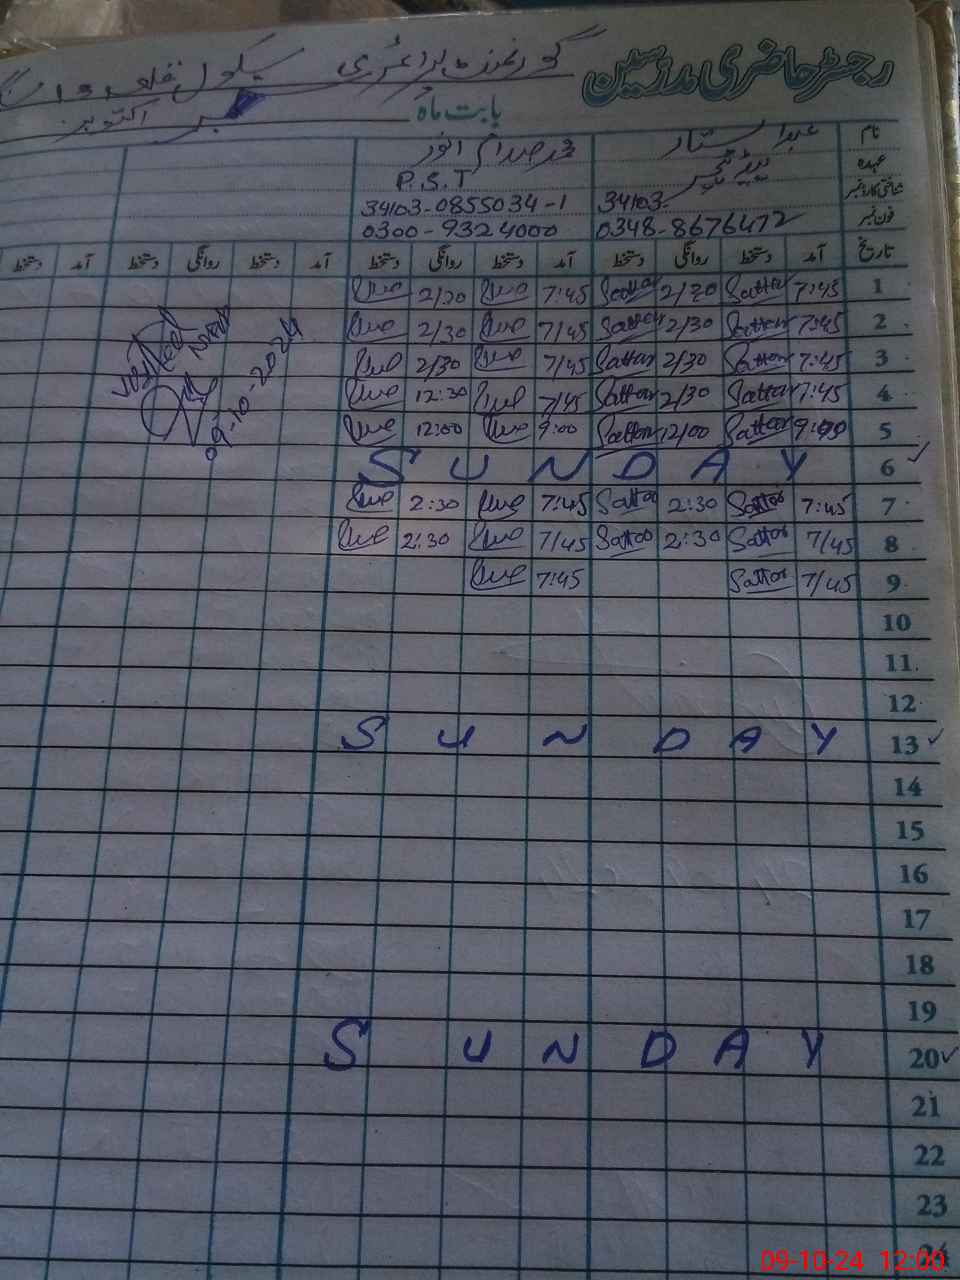 رجسٹر حاضری مدرسین گورنمنٹ پرائمری سکول
بابت ماہ اکتوبر
نام عبدالستار
عہدہ ہیڈ ٹیچر P.S.T
شناختی کارڈ نمبر 34103- 34103-0855034-1
فون نمبر 0348-8676472 0300-9324000
تاریخ آمد دستخط روانگی دستخط آمد دستخط روانگی دستخط آمد دستخط روانگی دستخط آمد دستخط
1 7:45 Sattar 2/30 Sattar 7:45 2/30
2 7:45 Sattar 2/30 Sattar 7/45 2/30
3 7:45 Sattar 2/30 Sattar 7/45 2/30
4 7:45 Sattar 2/30 Sattar 7/45 12:30
5 9:00 Sattar 12/00 Sattar 9:00 12:00
6 SUNDAY
7 7:45 Sattar 2:30 Sattar 7:45 2:30
8 7/45 Sattar 2:30 Sattar 7/45 2:30
9 7/45 Sattar 7:45
10
11
12
13 SUNDAY
14
15
16
17
18
19
20 SUNDAY
21
22
23
24
09-10-2024
09-10-24 12:00